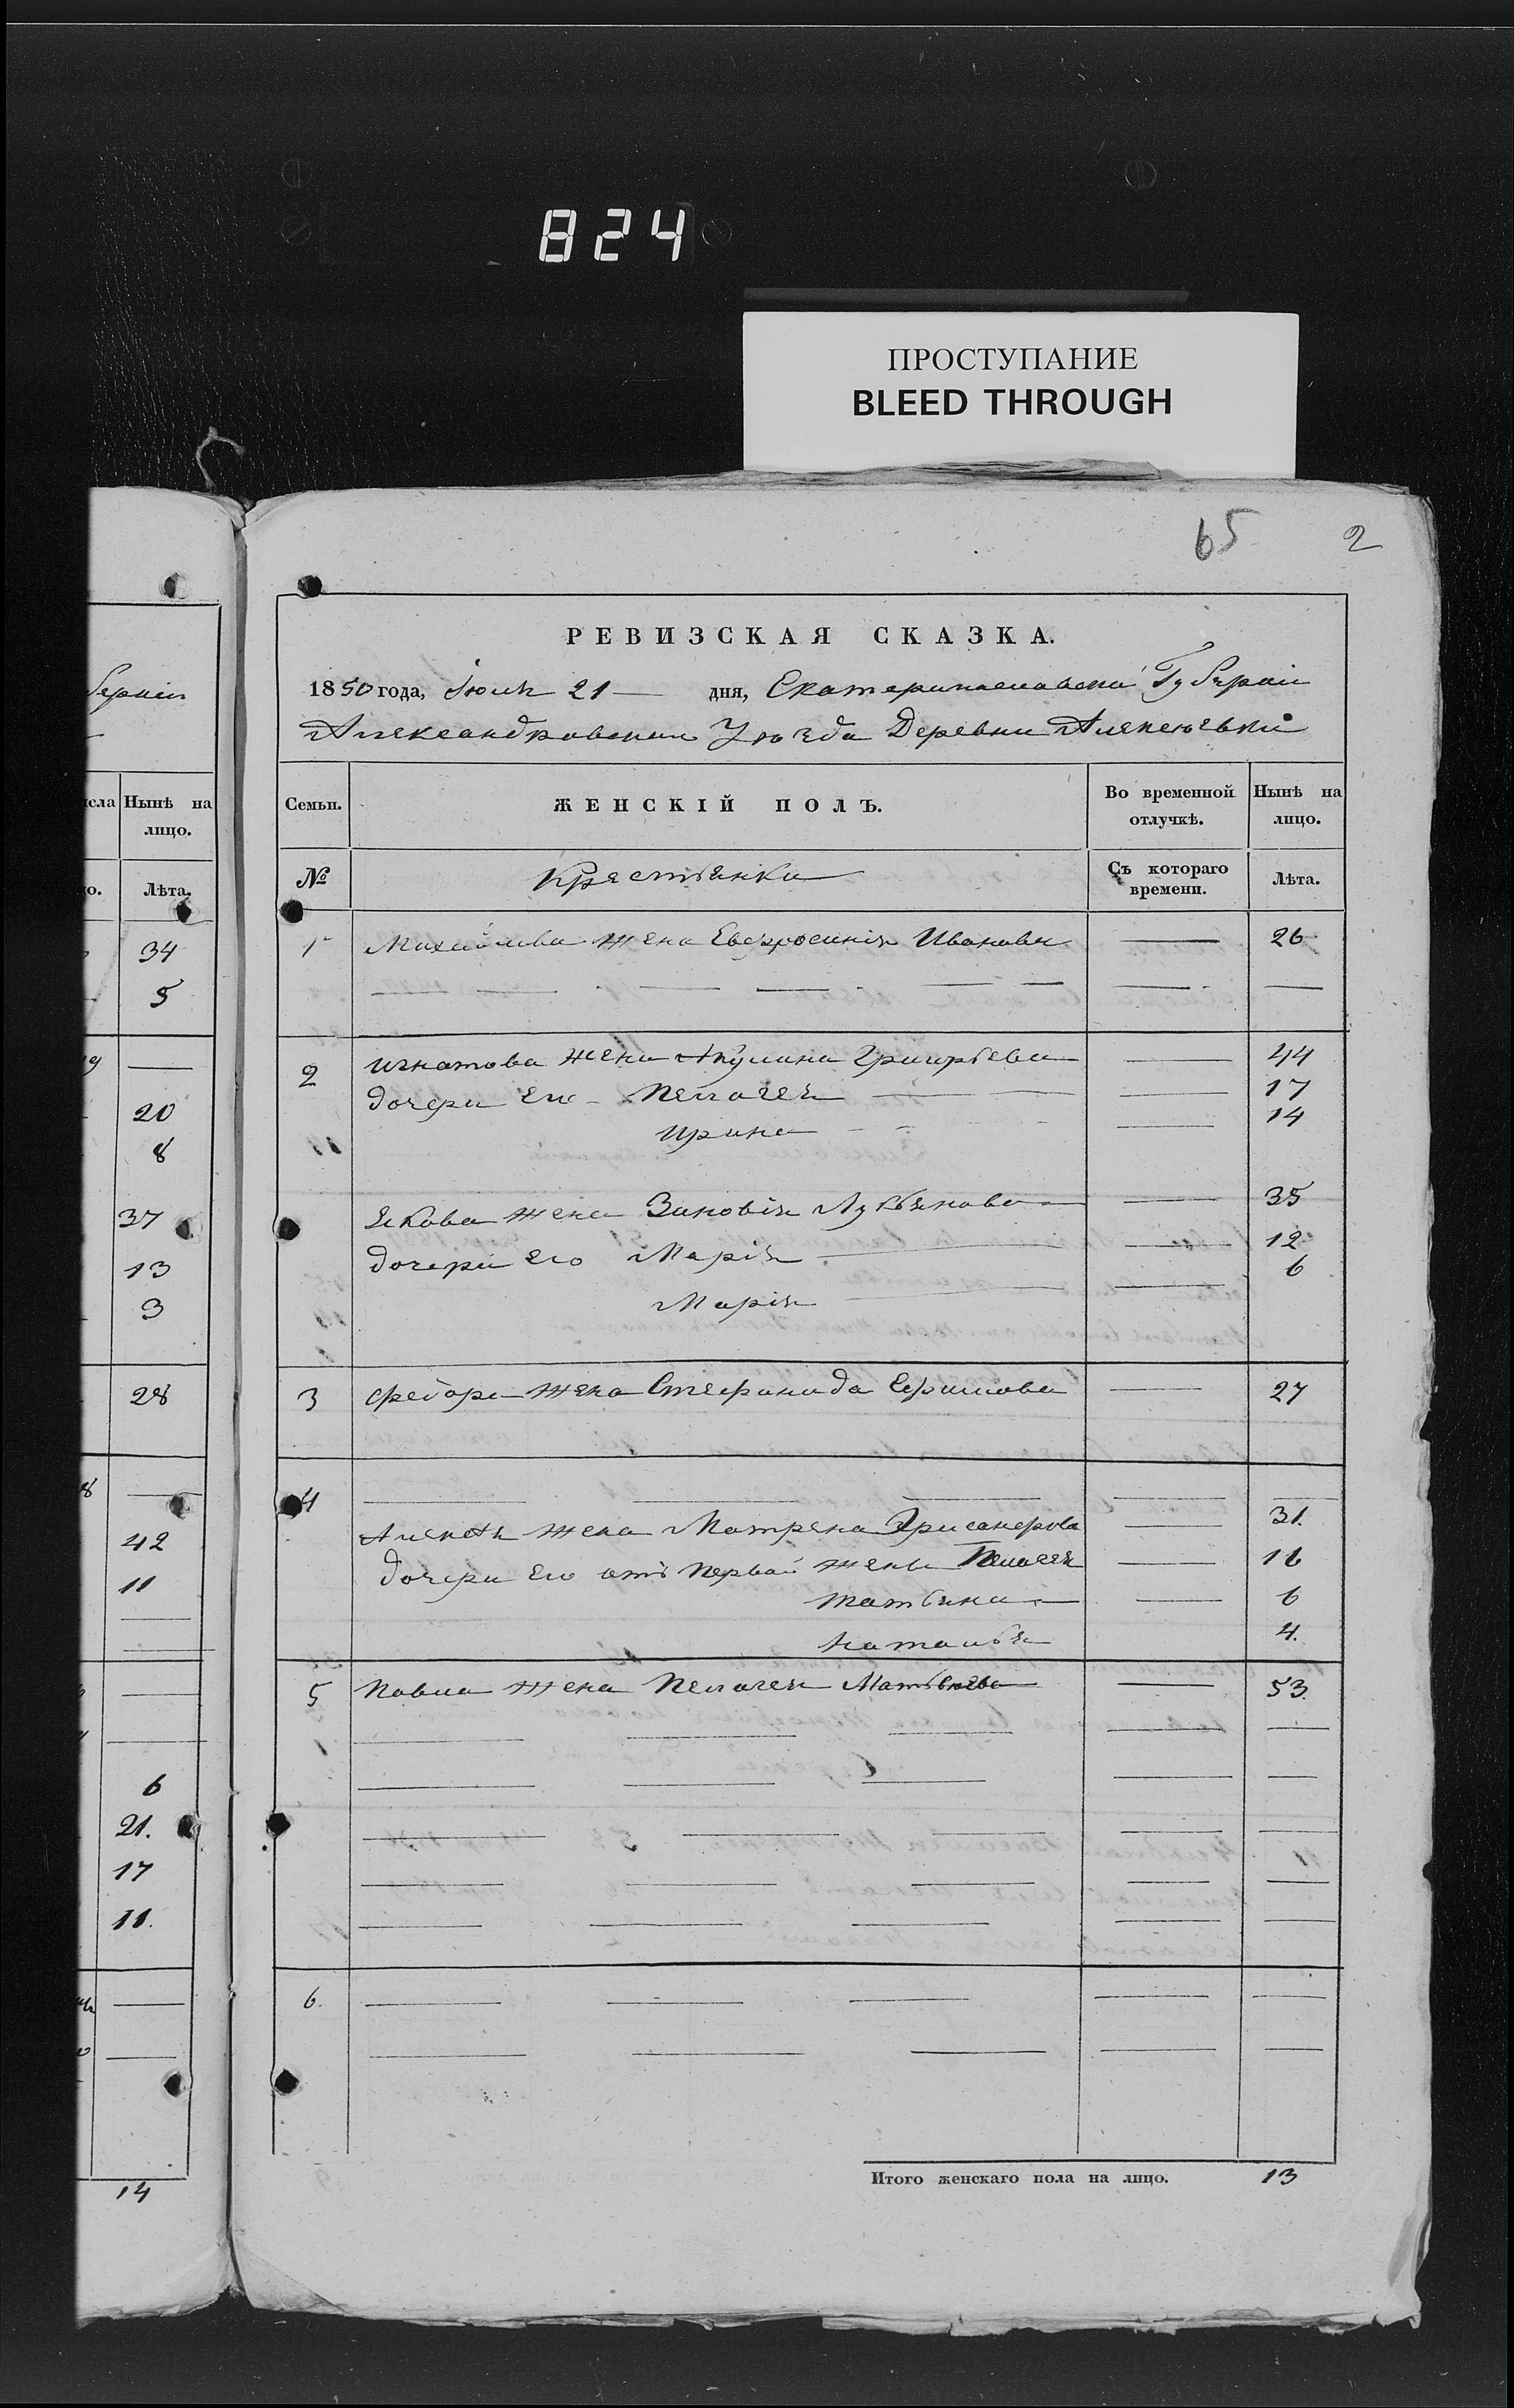 824
ПРОСТУПАНИЕ
BLEED THROUGH
65
2
Нынѣ на
лицо.
Лѣта.
34
5
20
8
37
13
3
28
42
11
6
21.
17
11.
14
РЕВИЗСКАЯ СКАЗКА.
1850 года, Іюля 21 дня, Екатеринославской Губерніи
Александровскаго Уѣзда Деревни
Семьи. ЖЕНСКІЙ ПОЛЪ. Во временной отлучкѣ. Нынѣ на лицо.
№ Крестьянки Съ котораго времени. Лѣта.
1 Михайлова жена Евфросинія Иванова 26
2 Игнатова жена Акулина Григорьева 44
дочери его Пелагея 17
Ирина 14
Якова жена Зиновія Лукьянова 35
дочери его Марія 12
Марія 6
3 Федора жена Стефанида Ефимова 27
4
Алексѣя жена Матрена 31.
дочери его отъ первой жены Пелагея 16
Татьяна 6
Наталья 4.
5 Павла жена Пелагея Матвѣева 53.
6.
Итого женскаго пола на лицо. 13